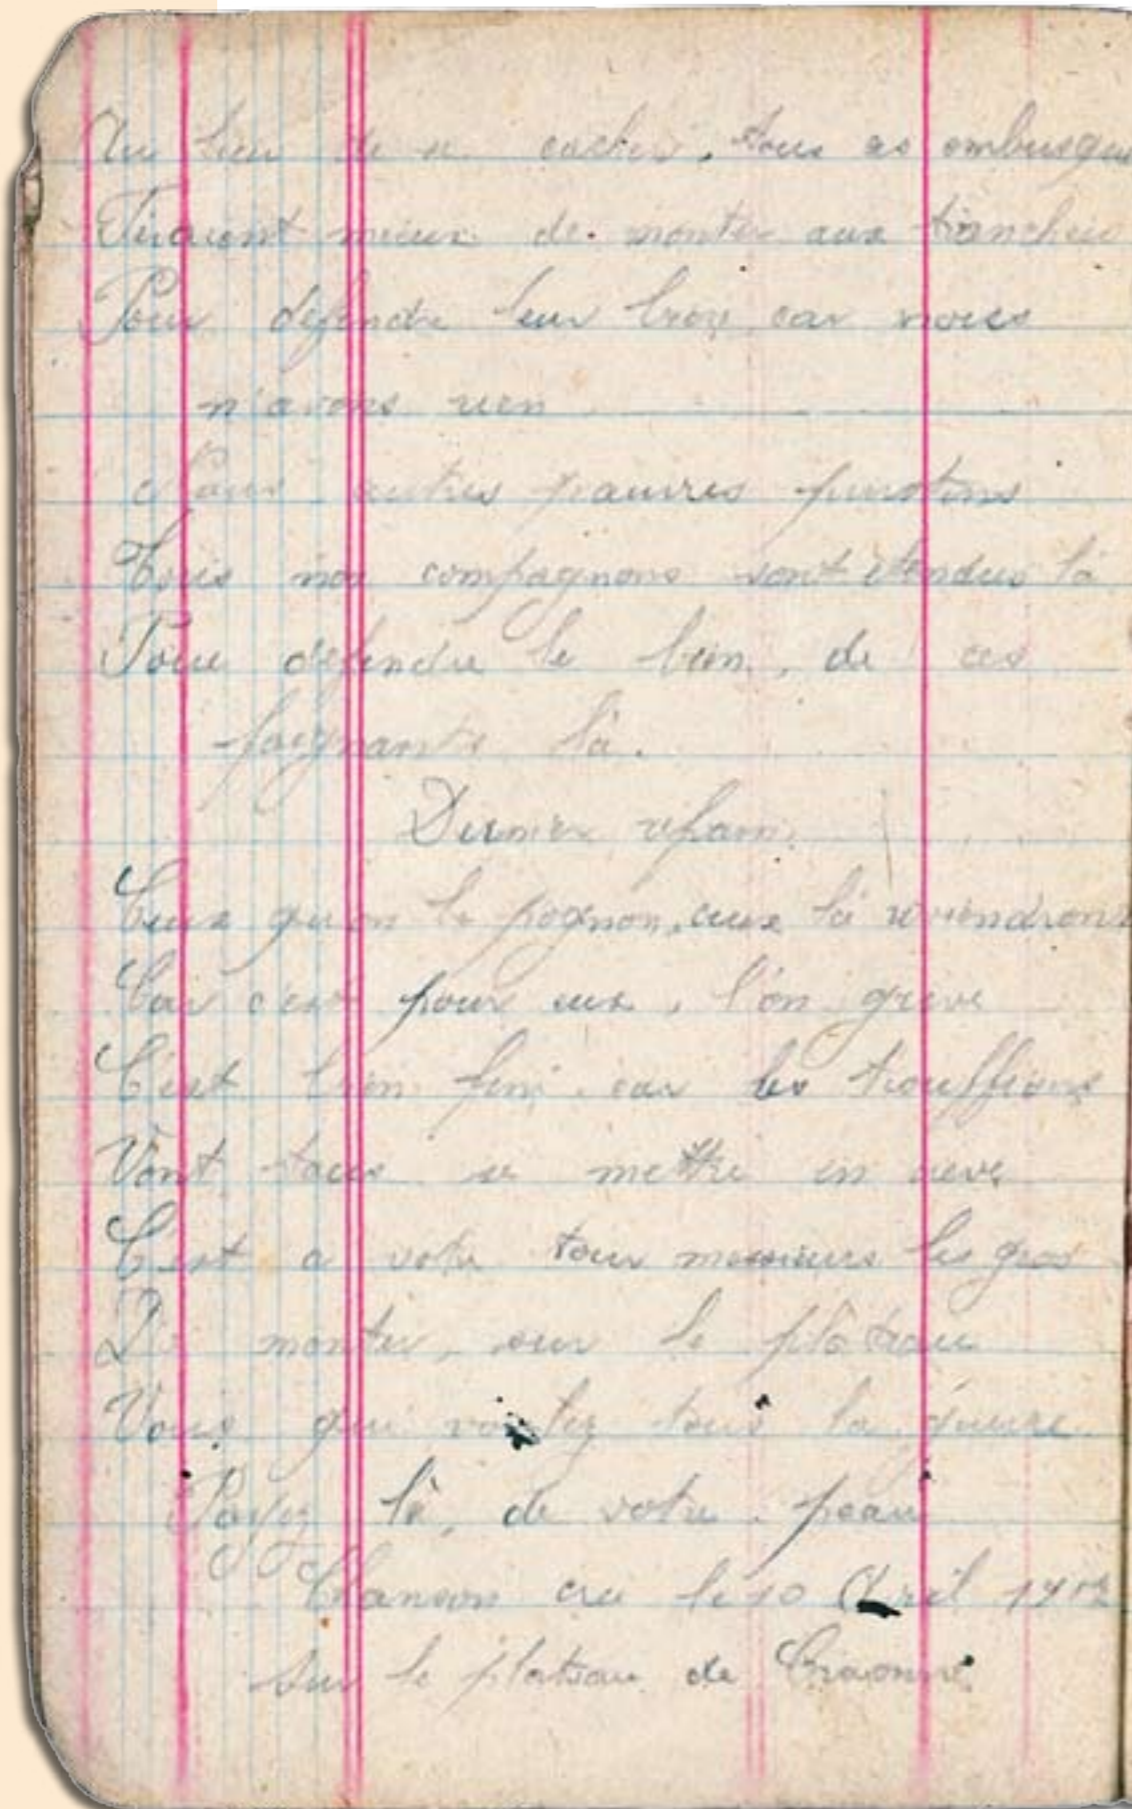 Au lieu de se cacher, tous ces embusqu
Feraient mieux de monter aux tranchées
Pour défendre leur bien, car nous
n'avons rien
Nous autres pauvres purotins
Tous nos compagnons sont étendus là
Pour défendre le bien, de ces
faignants là.
Dernier refrain
Ceux qu'on le pognon, ceux là reviendrons
Car c'est pour eux, l'on grève
C'est bien fini, car les trouffions
Vont tous se mettre en grève
C'est a votre tour messieurs les gros
De monter, sur le plâteau
Vous qui voulez tous la guerre
Payez là, de votre peau
Chanson cré le 10 Avril 1917
sur le plateau de Craonne